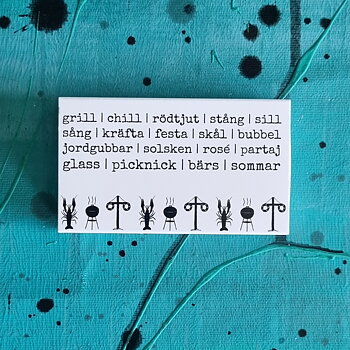 grill | chill | rödtjut | stång | sill
sång | kräfta | festa | skål | bubbel
jordgubbar | solsken | rosé | partaj
glass | picknick | bärs | sommar